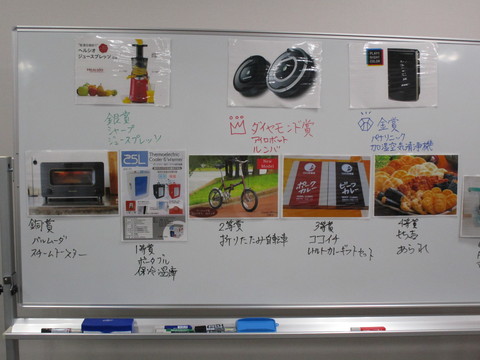 ヘルシオ
ジュースプレッソ
銀賞
シャープ
ジュースプレッソ
ダイヤモンド賞
アイロボット
ルンバ
金賞
パナソニック
加湿空気清浄機
25L
Thermoelectric
Cooler & Warmer
ポークカレー
ビーフカレー
銅賞
バルミューダ
スチームトースター
1等賞
ポータブル
保冷温庫
2等賞
折りたたみ自転車
3等賞
ココイチ
レトルトカレーギフトセット
4等賞
もち吉
あられ